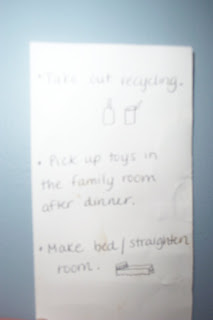 • Take out recycling.
• Pick up toys in
the family room
after dinner.
• Make bed/straighten
room.